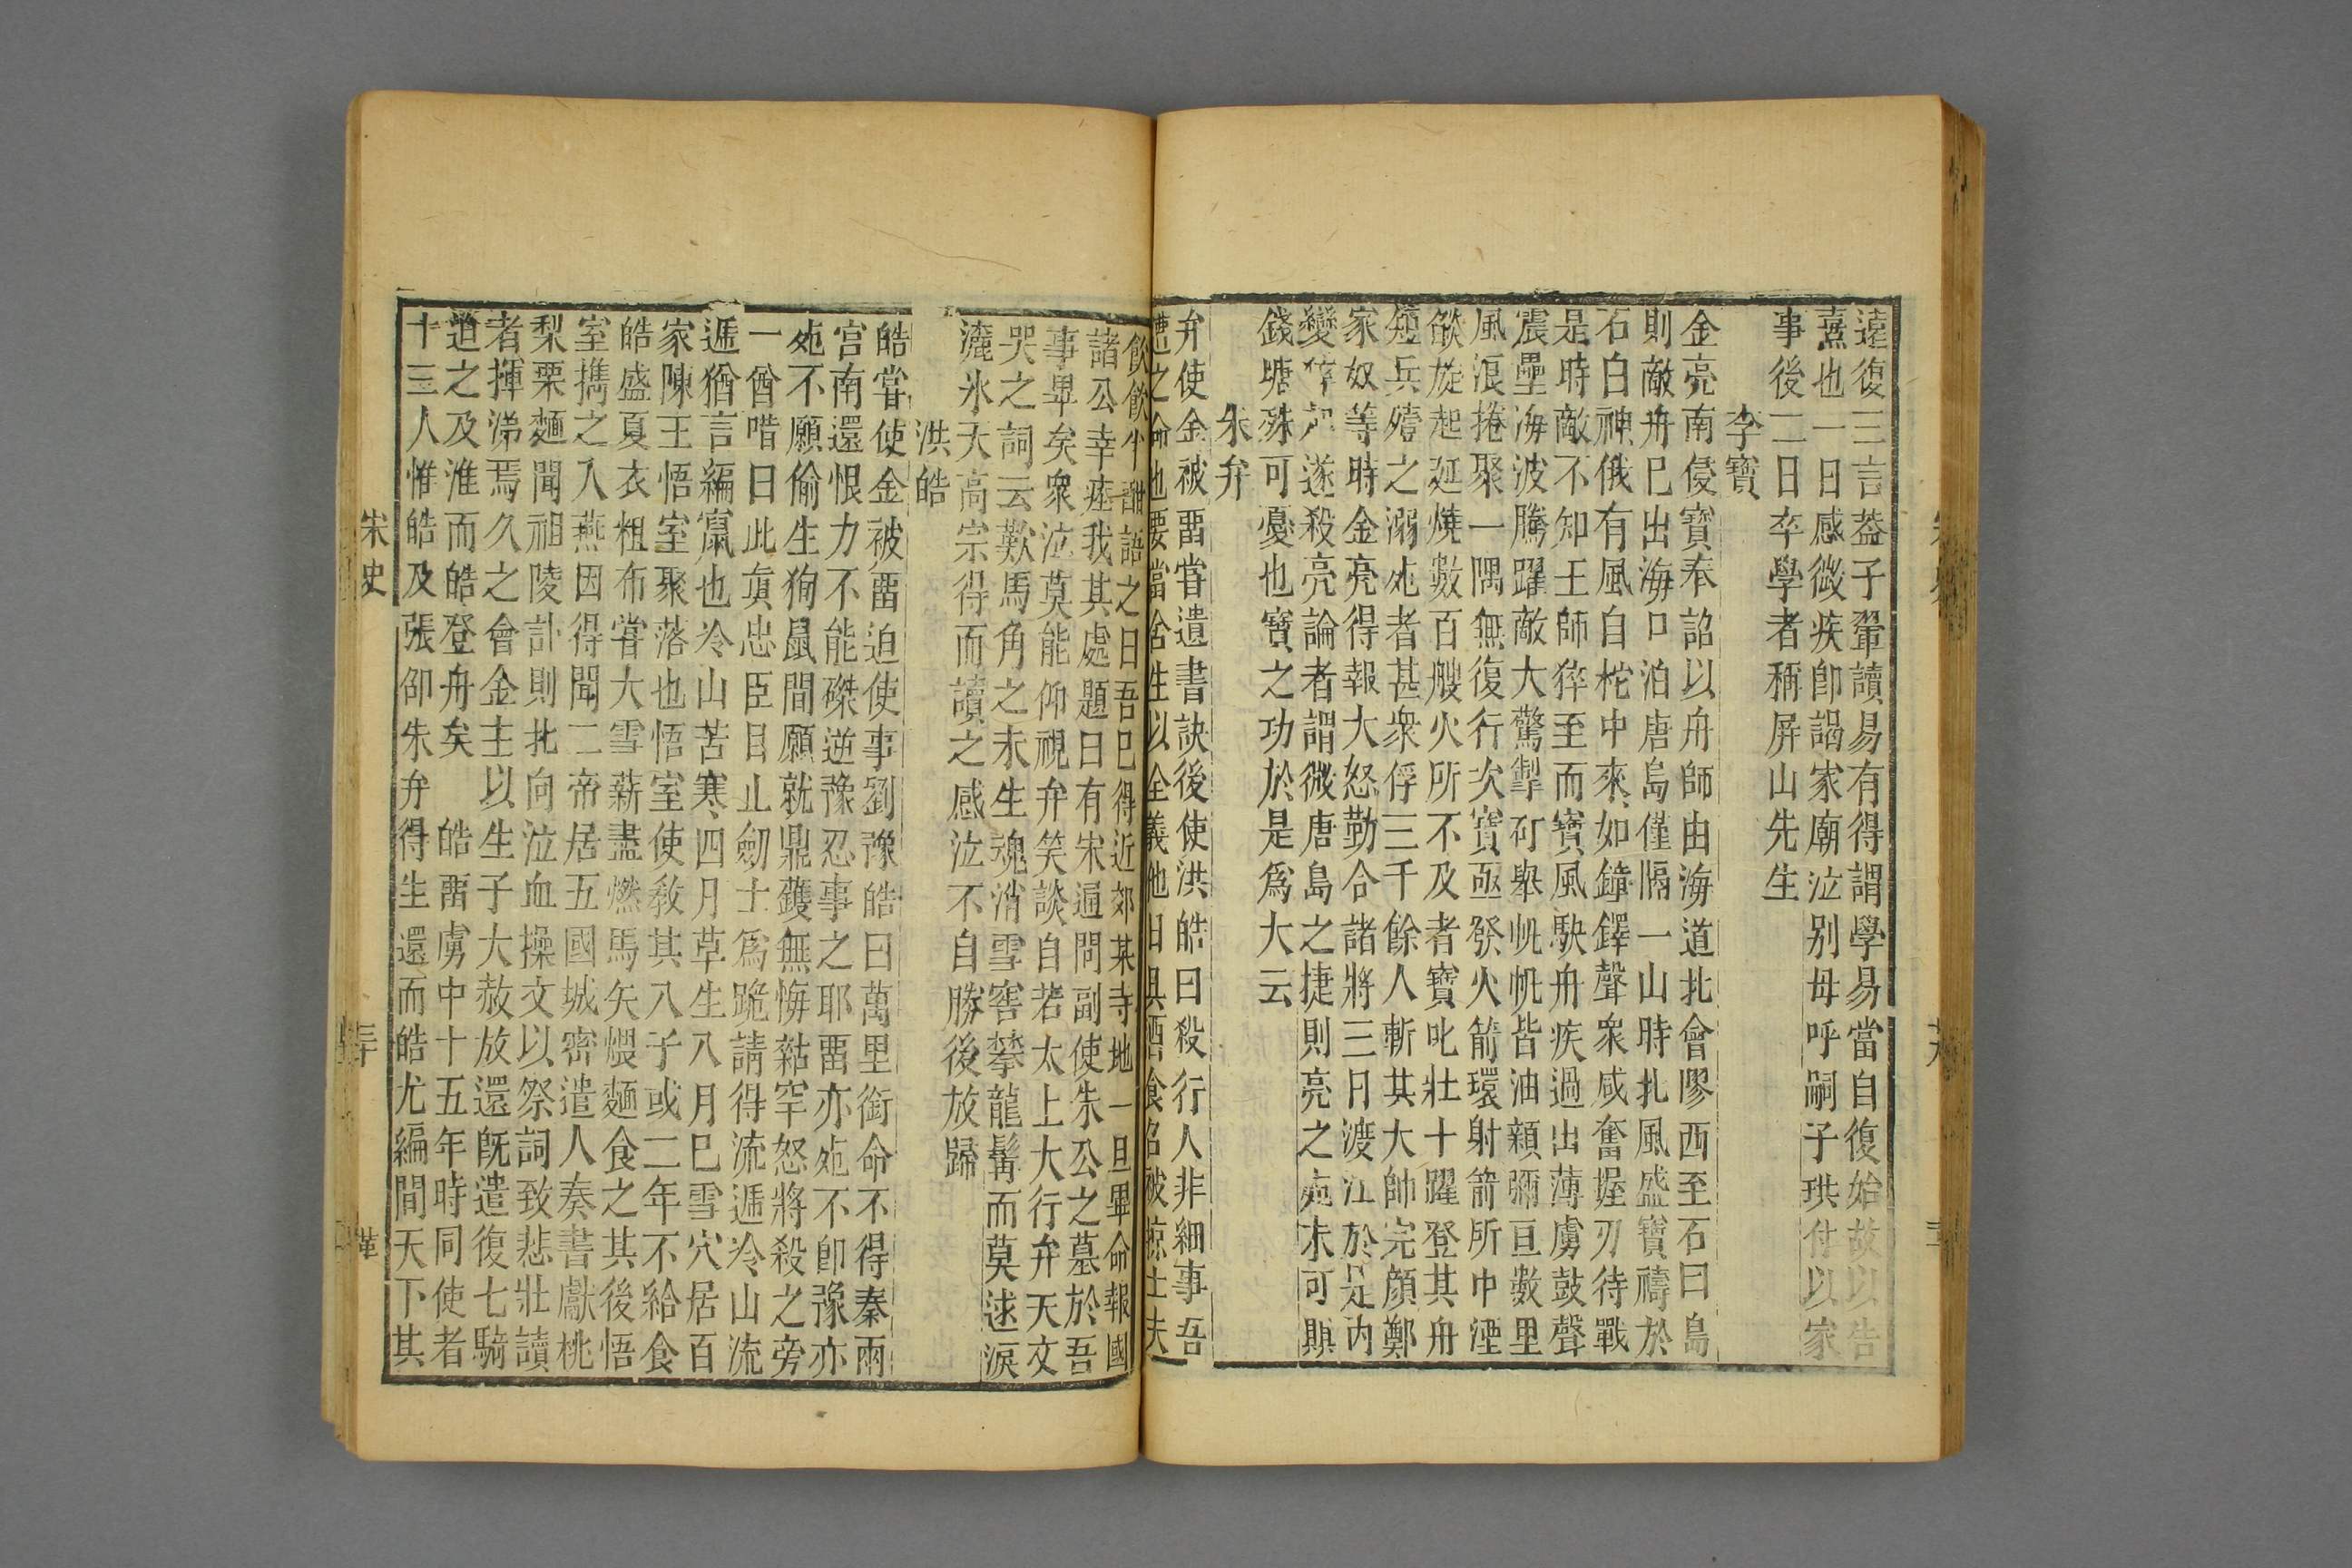 遠復三言葢子翬讀易有得謂學易當自復始故以告
熹也一日感微疾卽謁家廟泣别母呼嗣子珙付以家
事後二日卒學者稱屏山先生
李寶
金亮南侵寶奉詔以舟師由海道北會膠西至石臼島
則敵舟巳出海口泊唐島僅隔一山時北風盛寶禱於
石臼神俄有風自柁中來如鐘鐸聲衆咸奮握刃待戰
是時敵不知王師猝至而寶風駛舟疾過出薄虜鼓聲
震疊海波騰躍敵大驚掣矴舉帆帆皆油纈彌亘數里
風浪捲聚一隅無復行次寶亟發火箭環射箭所中煙
燄旋起延燒數百艘火所不及者寶叱壯士躍登其舟
短兵殪之溺死者甚衆俘三千餘人斬其大帥完顔鄭
家奴等時金亮得報大怒勒合諸將三日渡江於是内
變猝起遂殺亮論者謂微唐島之捷則亮之死未可期
錢塘殊可憂也寶之功於是爲大云
朱弁
弁使金被畱嘗遺書訣後使洪皓曰殺行人非細事吾
遭之命也要當舍生以全義他日具酒食召被掠士夫
飲飲半酣語之曰吾巳得近郊某寺地一旦畢命報國
諸公幸瘞我其處題曰有宋通問副使朱公之墓於吾
事畢矣衆泣莫能仰視弁笑談自若太上大行弁天文
哭之詞云歎馬角之未生魂消雪窖攀龍髯而莫逮淚
灑氷天高宗得而讀之感泣不自勝後放歸
洪皓
皓嘗使金被畱迫使事劉豫皓曰萬里銜命不得奉兩
宮南還恨力不能磔逆豫忍事之耶畱亦死不卽豫亦
死不願偷生狥鼠間願就鼎鑊無悔粘罕怒將殺之旁
一酋唶曰此眞忠臣目止劒士爲跪請得流遞冷山流
遞猶言編竄也冷山苦寒四月草生八月巳雪穴居百
家陳王悟室聚落也悟室使敎其八子或二年不給食
皓盛夏衣粗布嘗大雪薪盡燃馬矢煨麵食之其後悟
室攜之入燕因得聞二帝居五國城密遣人奏書獻桃
梨栗麵聞祖陵訃則北向泣血操文以祭詞致悲壯讀
者揮涕焉久之會金主以生子大赦放還旣遣復七騎
追之及淮而皓登舟矣 皓畱虜中十五年時同使者
十三人惟皓及張卲朱弁得生還而皓尤編間天下其
宋史